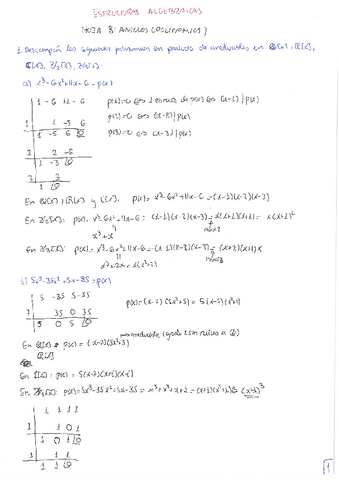 ESTRUCTURAS ALGEBRAICAS
HOJA 8: ANILLOS (POLINOMIOS)
1. Descompón los siguientes polinomios en producto de irreducibles en Q[x], R[x],
C[x], Z/2[x], Z/3[x].
a) x³-6x²+11x-6 = p(x)
1 -6 11 -6
1 1 -5 6
1 -5 6 0
2 2 -6
1 -3 0
3 3
1 0
p(1)=0 ⇔ (x-1) | p(x)
p(2)=0 ⇔ (x-2) | p(x)
p(3)=0 ⇔ (x-3) | p(x)
En Q[x], R[x] y C[x]: p(x) = x³-6x²+11x-6 = (x-1)(x-2)(x-3)
En Z/2[x]: p(x) = x³-6x²+11x-6 = (x-1)(x-2)(x-3) = x(x+1)(x+1) = x(x+1)²
x³+x
En Z/3[x]: p(x) = x³-6x²+11x-6 = (x-1)(x-2)(x-3) = (x+2)(x+1)x
x³+2x = x(x²+2)
b) 5x³-35x²+5x-35 = p(x)
5 -35 5 -35
7 35 0 35
5 0 5 0
p(x) = (x-7)(5x²+5) = 5(x-7)(x²+1)
En Q[x]: p(x) = (x-7)(5x²+5)
R[x]
En C[x]: p(x) = 5(x-7)(x+i)(x-i)
En Z/2[x]: p(x) = 5x³-35x²+5x-35 = x³+x²+x+1 = (x+1)(x²+1) = (x+1)³
1 1 1 1
1 1 0 1
1 0 1 0
1 1 1
1 1 0
1